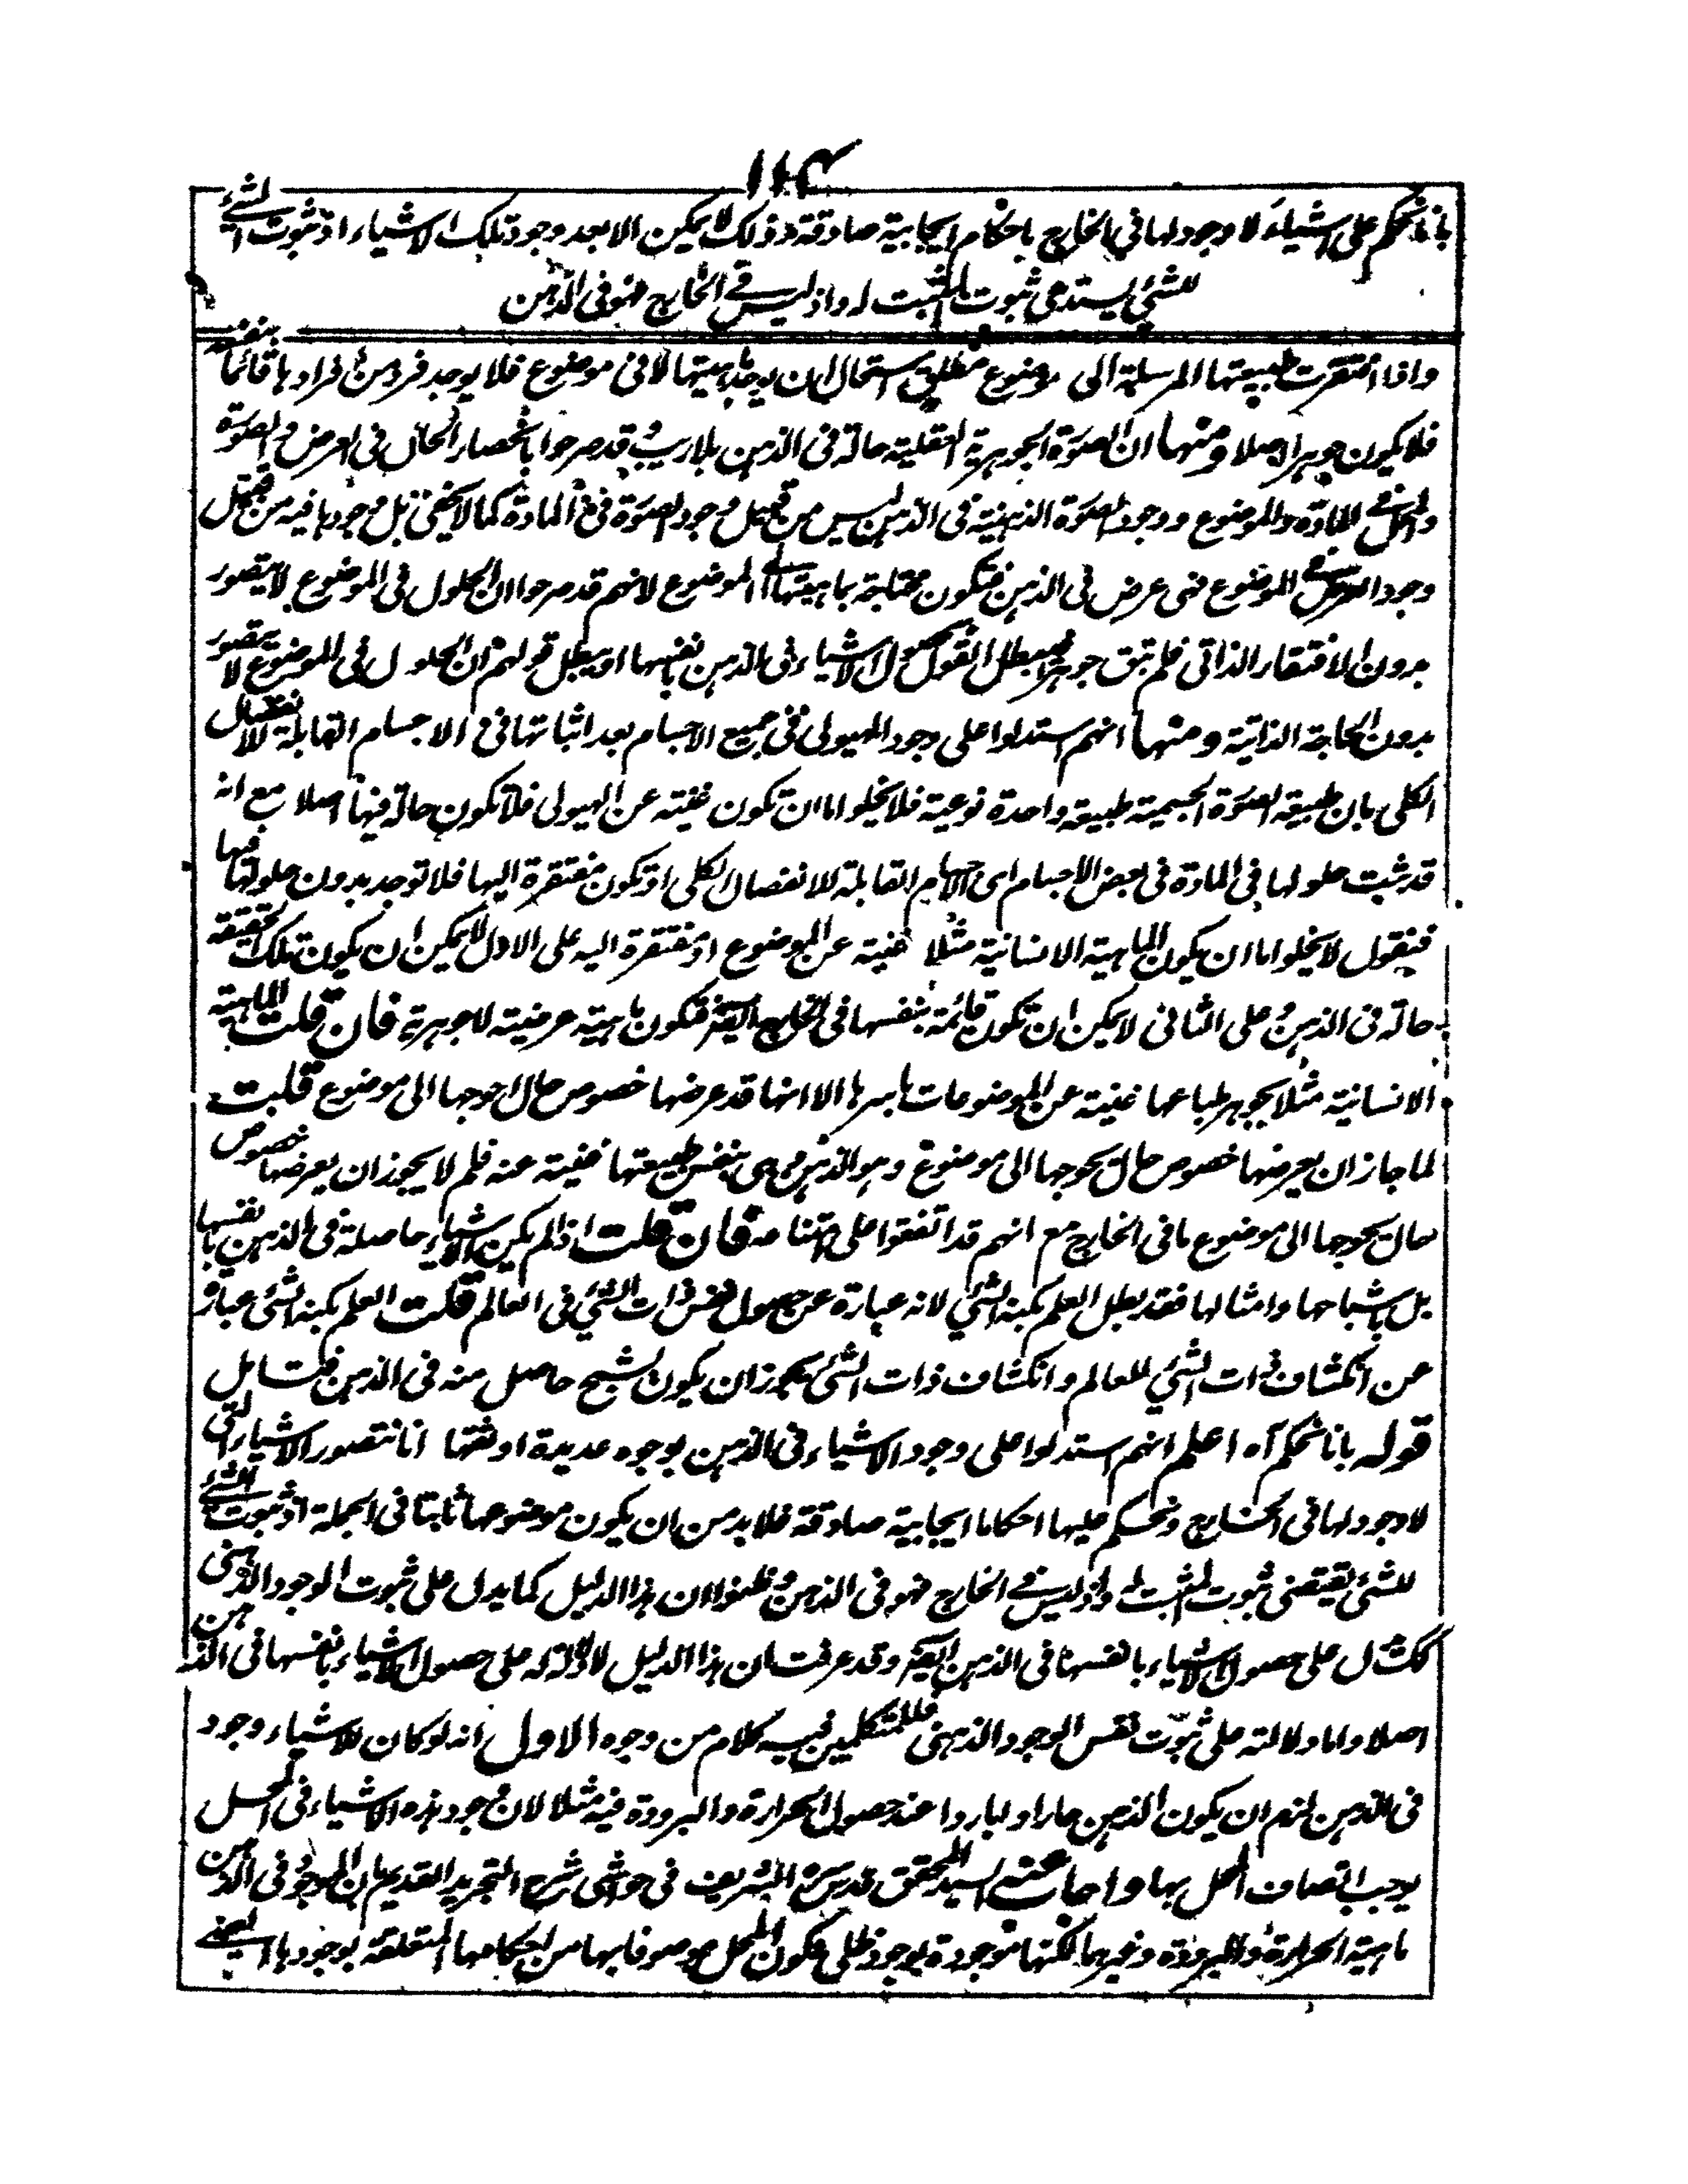 ١١٤
بانا نحكم على اشياء لا وجود لها فى الخارج باحكام ايجابية صادقة وذلك لا يمكن الا بعد وجود تلك الاشياء اذ ثبوت الشئ
للشئ يستدعى ثبوت المثبت له واذ ليس فى الخارج فهو فى الذهن
واذا افتقرت طبيعتها المرسلة الى موضوع مطلق استحال ان يوجد ماهيتها لا فى موضوع فلا يوجد فرد من افرادها قائما بنفسه
فلا يكون جوهرا اصلا ومنها ان الصورة الجوهرية العقلية حالة فى الذهن بلا ريب وقد صرحوا بانحصار الحال فى العرض والصورة
والمحل فى المادة والموضوع ووجود الصورة الذهنية فى الذهن ليس من قبيل وجود الصورة فى المادة كما لا يخفى بل وجودها فيه من قبيل
وجود العرض فى الموضوع فهى عرض فى الذهن فتكون محتاجة بماهيتها الى الموضوع لانهم قد صرحوا ان الحلول فى الموضوع لا يتصور
بدون الافتقار الذاتى فلم تبق جوهرا فيبطل القول بحصول الاشياء فى الذهن بانفسها او يبطل قولهم ان الحلول فى الموضوع لا يتصور
بدون الحاجة الذاتية ومنها انهم استدلوا على وجود الهيولى فى جميع الاجسام بعد اثباتها فى الاجسام القابلة للانفصال
الكلى بان طبيعة الصورة الجسمية طبيعة واحدة نوعية فلا يخلوا اما ان تكون غنية عن الهيولى فلا تكون حالة فيها اصلا مع انه
قد ثبت حلولها فى المادة فى بعض الاجسام اى الاجسام القابلة للانفصال الكلى او تكون مفتقرة اليها فلا توجد بدون حلولها فيها
فنقول لا يخلوا اما ان يكون الماهية الانسانية مثلا غنية عن الموضوع او مفتقرة اليه على الاول لا يمكن ان يكون تلك الحقيقة
حالة فى الذهن وعلى الثانى لا يمكن ان تكون قائمة بنفسها فى الخارج ايضا فتكون ماهية عرضية لا جوهرية فان قلت الماهية
الانسانية مثلا بجوهر طباعها غنية عن الموضوعات باسرها الا انها قد عرضها خصوص حال احوجها الى موضوع قلت
لما جاز ان يعرضها خصوص حال يحوجها الى موضوع وهو الذهن وهى بنفس طبيعتها غنية عنه فلم لا يجوز ان يعرضها خصوص
حال يحوجها الى موضوع ما فى الخارج مع انهم قد اتفقوا على امتناعه فان قلت اذا لم يكن الاشياء حاصلة فى الذهن بانفسها
بل باشباحها وامثالها فقد بطل العلم بكنه الشئ لانه عبارة عن حصول نفس ذات الشئ فى العالم قلت العلم بكنه الشئ عبارة
عن انكشاف ذات الشئ للعالم وانكشاف ذات الشئ يجوز ان يكون لشبح حاصل منه فى الذهن فتامل
قوله بانا نحكم آه اعلم انهم استدلوا على وجود الاشياء فى الذهن بوجوه عديدة اوثقها انا نتصور الاشياء التى
لا وجود لها فى الخارج ونحكم عليها احكاما ايجابية صادقة فلا بد من ان يكون موضوعها ثابتا فى الجملة اذ ثبوت الشئ
للشئ يقتضى ثبوت المثبت له واذ ليس فى الخارج فهو فى الذهن وظنوا ان هذا الدليل كما يدل على ثبوت الوجود الذهنى
كك دل على حصول الاشياء بانفسها فى الذهن ايضا وقد عرفت ان هذا الدليل لا دلالة له على حصول الاشياء بانفسها فى الذهن
اصلا واما دلالته على ثبوت نفس الوجود الذهنى فللمتكلمين فيه كلام من وجوه الاول انه لو كان للاشياء وجود
فى الذهن لزم ان يكون الذهن حارا وباردا عند حصول الحرارة والبرودة فيه مثلا لان وجود هذه الاشياء فى المحل
يوجب اتصاف المحل بها واجاب عنه السيد المحقق قدس سره الشريف فى حواشى شرح التجريد القديم بان الموجود فى الذهن
ماهية الحرارة والبرودة وغيرهما لكنها موجودة بوجود ظلى فكون المحل موصوفا بها من احكامها المتعلقة بوجودها العينى